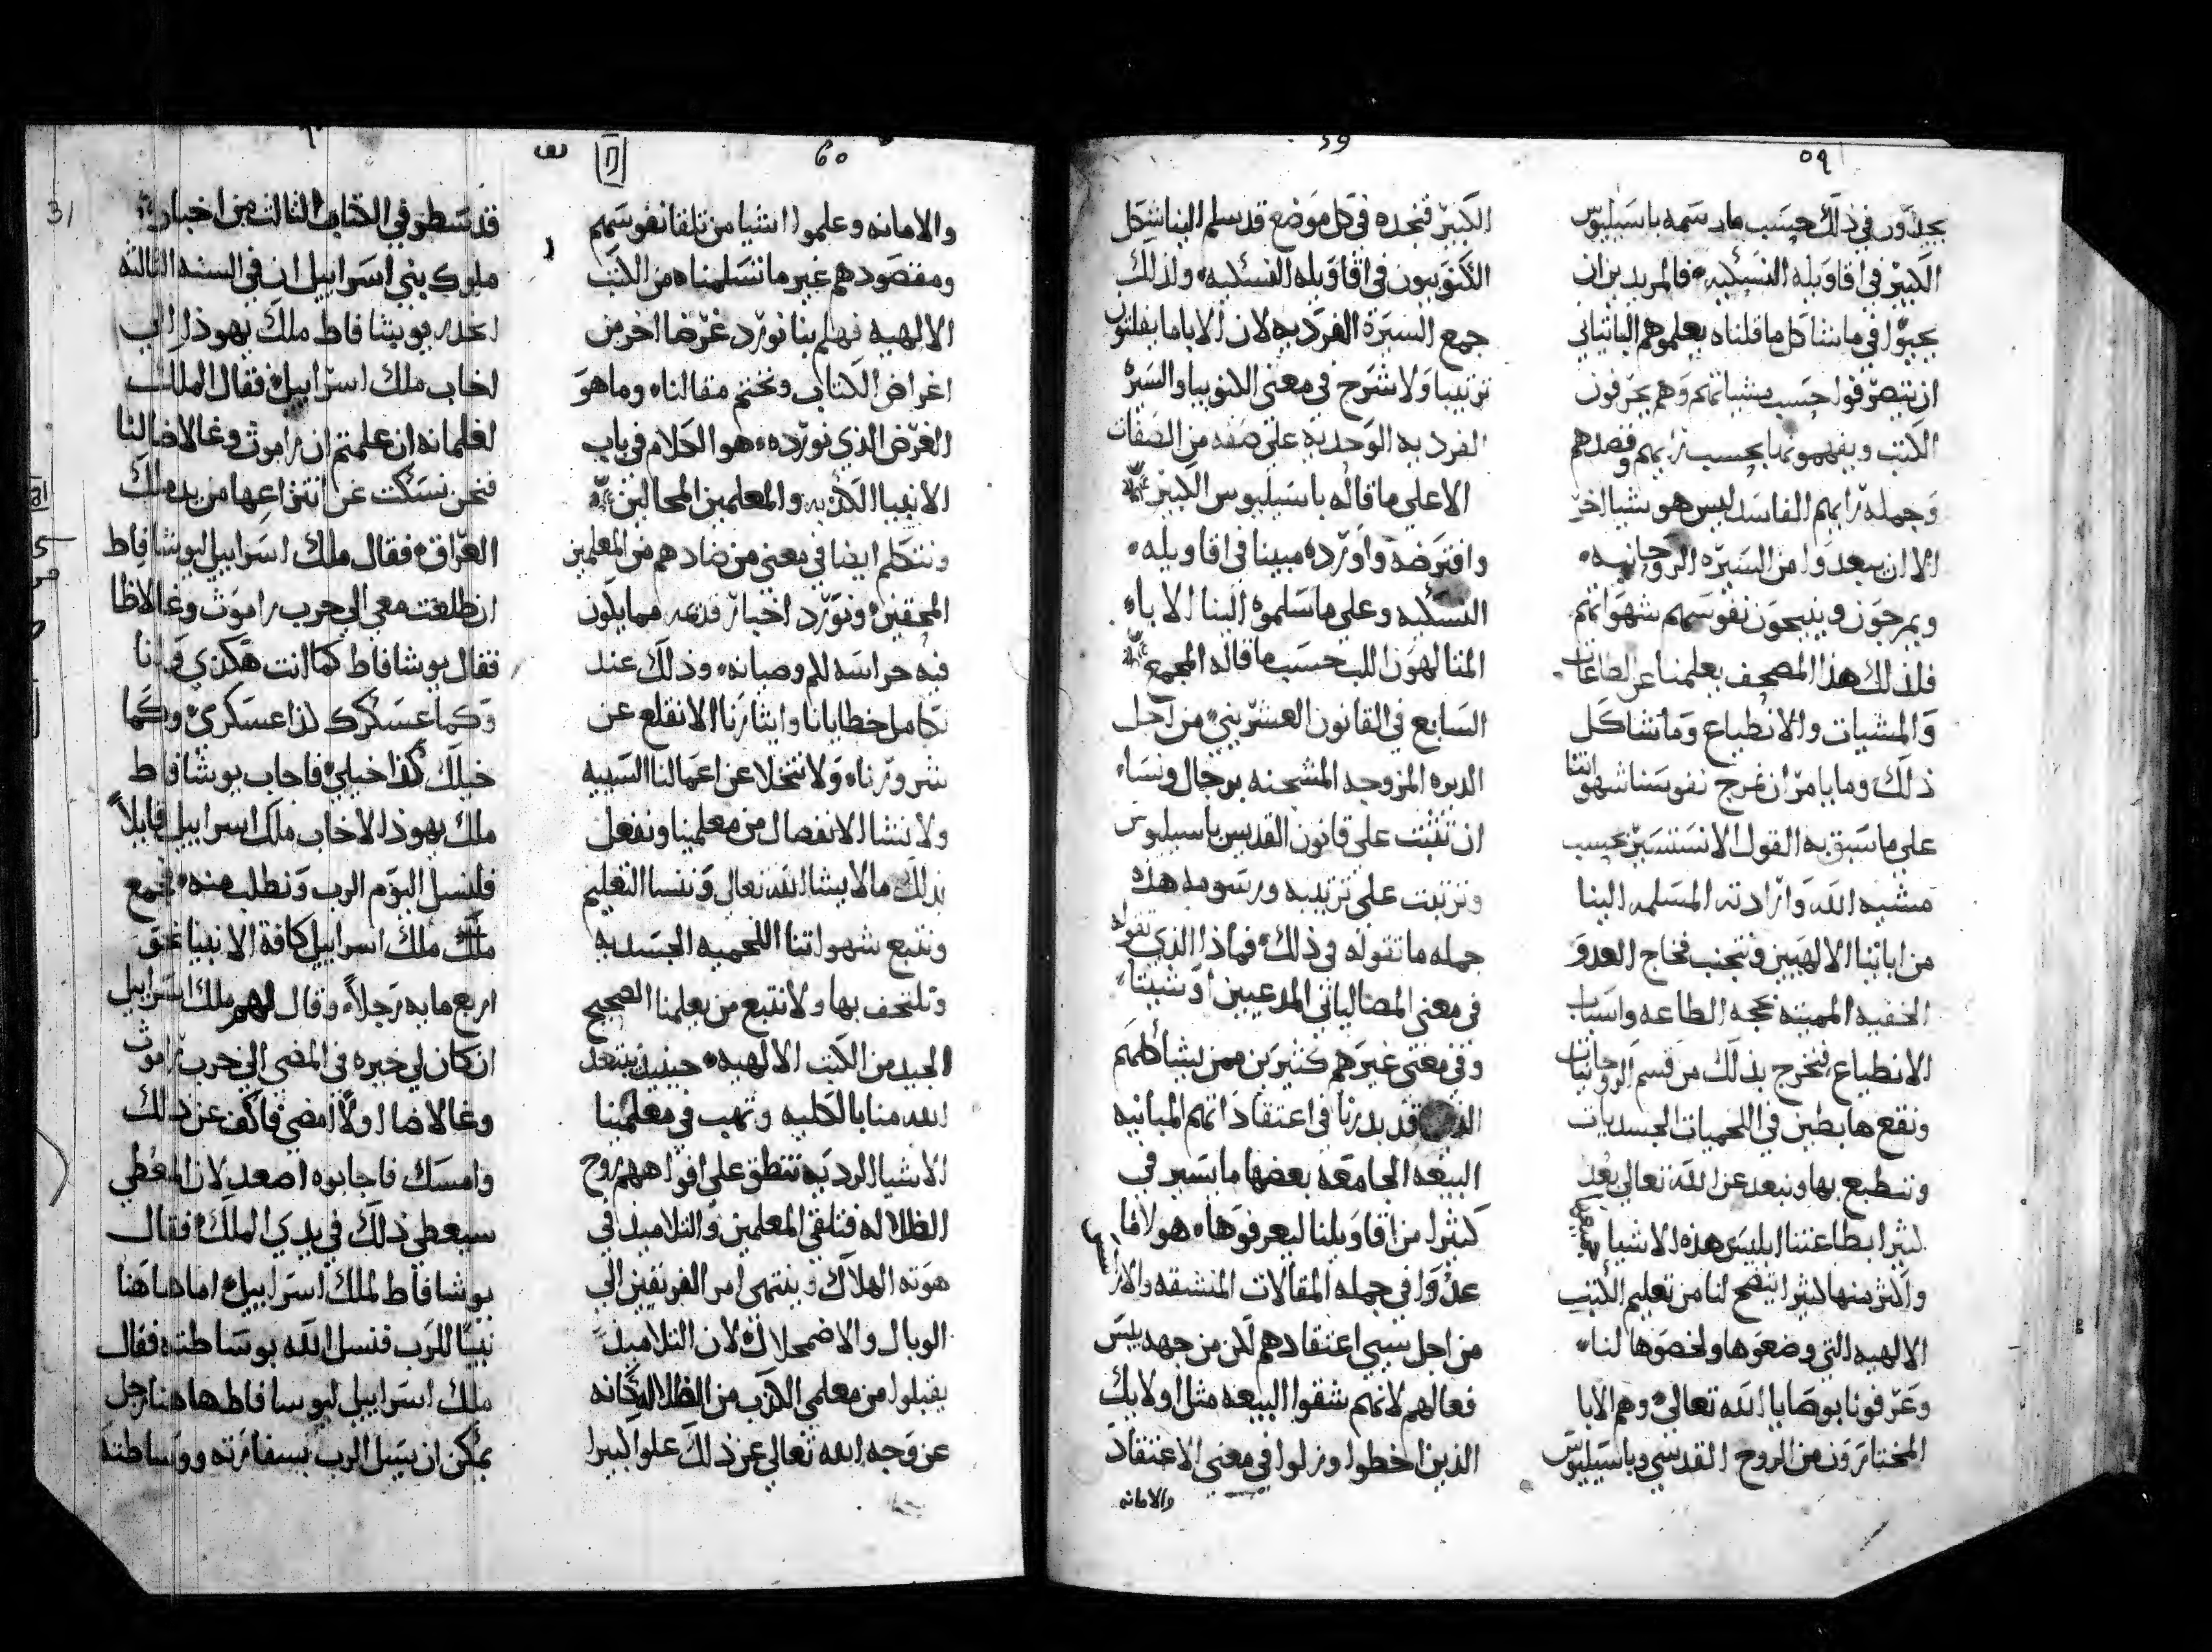 ٥٩
59
يجدون في ذلك حسب ما رسمه باسيليوس
الكبير في اقاويله النسكيه، فالمريدين ان
يجيوا في ما بيننا كل ما قلناه يعلموهم اليانياني
ان يتصرفوا حسب مشياتهم وهم يحرفون
الكتب ويفهمونها بحسب رايهم وقصدهم
وجملة رايهم الفاسد ليس هو شيا اخر
الا ان يبعدوا من السيرة الروحانيه،
ويمرجون وينيحون نفوسهم شهواتهم
فلذلك هذا المصحف يعلمنا عن الطاعات
والمشيات والانطباع وما شاكل
ذلك وما يامر ان نمرج نفوسنا شهواتنا
على ما سبق به القول الا نستسير بحسب
مشيه الله وارادته المسلمه الينا
من اباينا الالهيين ونتجنب فخاخ العدو
الخفيه المميته بحجه الطاعه واسباب
الانطباع فنخرج بذلك من قسم الروحانيات
ونقع هابطين في اللحميات الجسدانيات
وننطبع بها ونبعد عن الله تعالى بعد
كثيرا بطاعتنا ابليس هذه الاشيا
واكثر منها كثيرا يتضح لنا من تعليم الكتب
الالهيه التي وضعوها ولخصوها لنا،
وعرفونا بوصايا الله تعالى وهم الابا
المختارون من الروح القدسي وباسيليوس
الكبير فنجده في كل موضع قد سلم الينا شكل
الكنوبيون في اقاويله النسكيه، ولذلك
جمع السيرة الفرديه لان الاباما يفلتون
ترتيبا ولا شرح في معنى الكنوبيا والسيرة
الفرديه الوحديه على صفه من الصفات
الا على ما قاله باسيليوس الكبير
وافترضه واورده مبينا في اقاويله،
النسكيه وعلى ما سلموه الينا الاباه
المتالهون اللب حسب ما قاله المجمع
السابع في القانون العشريني من اجل
الديره المزوجه المشحنه برجال ونساء،
ان تثبت على قانون القديس باسيليوس
وترتبت على ترتيبه ورسومه هذه
جمله ما نقوله في ذلك، فماذا الذي نقوله
في معنى المصاليانى المدعيين اوشيتاء
وفي معنى غيرهم كثيرين ممن يشاكلهم
قد بدرنا في اعتقاداتهم المباينه
البيعه الجامعه بعضها ما يسير في
كثيرا من اقاويلنا ليعرفوها، هولاي فما
عدوا في جمله المقالات المنشقه والاراسيس
من اجل سيي اعتقادهم لكن من جهه بيس
فعالهم لانهم شقوا البيعه مثل اولايك
الذين اخطوا وزلوا في معنى الاعتقاد
والامانه
60
والامانه وعلموا اشيا من تلقا نفوسهم
ومقصودهم غير ما تسلمناه من الكتب
الالهيه فهلم بنا نورد غرضا اخر من
اغراض الكتاب ونختم مقالنا، وما هو
الغرض الذي نورده، هو الكلام في باب
الانبيا الكذبه والمعلمين المحالين
ونتكلم ايضا في معنى من ضادهم من المعلمين
المحقين، ونورد اخبار قديمه مما يكون
فيه حراسه لهم وصيانه، وذلك عند
تكامل خطايانا وايثارنا الا نقلع عن
شرورنا، ولا نتخلا عن اعمالنا السييه
ولا نشا الانفصال من معلمينا ونفعل
بذلك ما لا يشا الله تعالى وننسا التعليم
ونتبع شهواتنا اللحميه الجسديه
ونلتحف بها ولا نتبع من يعلمنا الصحيح
الجيد من الكتب الالهيه، حينيذ يبتعد
الله منا بالكليه وتهب في معلمينا
الاشيا الرديه تنطق على افواههم روح
الظلاله فتلقي المعلمين والتلاميذ في
هوته الهلاك وينتهى امر الفريقين الى
الوبال والاضمحلال لان التلاميذ
يقبلوا من معلمي الكذب من الظلاله كانه
عن وجه الله تعالى عن ذلك علوا كبيرا
31
قد سطر في الكتاب الثالث من اخبار
ملوك بني اسراييل ان في السنه الثالثه
انحدر يوشافاط ملك يهوذا الى
اخاب ملك اسراييل، فقال الملك
لغلمانه ان علمتم ان راموث وغالاضا لنا
فنحن نسكت عن انتزاعها من يد ملك
العراق، فقال ملك اسراييل ليوشافاط
انطلقت معى الى حرب راموث وغالاظا
فقال يوشافاط كما انت هكذى وانا
وكما عسكرك كذا عسكرى، وكما
خيلك كذا خيلي، فاجاب يوشافاط
ملك يهوذا لاخاب ملك اسراييل قايلاً
فلنسل اليوم الرب ونطلب منه، فجمع
ملك اسراييل كافة الانبيا نحو
اربع مايه رجلاً، وقال لهم ملك اسراييل
ان كان لي خيره في المضى الى حرب راموث
وغالاضا اولا امضي فاكف عن ذلك
وامسك فاجابوه اصعد لان المعطي
سيعطي ذلك في يدي الملك، فقال
يوشافاط لملك اسراييل، اما هاهنا
نبيا للرب فنسل الله بوساطته، فقال
ملك اسراييل ليوسافاط هاهنا رجل
يمكن ان يسل الرب بسفارته ووساطته